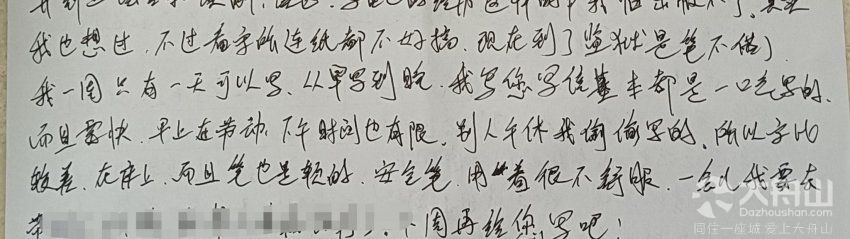 我也想过，不过看守所连纸都不好搞，现在到了监狱是笔不借，
我一周只有一天可以写，从早写到晚，我写您写信基本都是一口气写的，
而且要快，早上在劳动，下午时间也有限，别人午休我偷偷写的，所以字比
较差，在床上，而且笔也是软的，安全笔，用着很不舒服，一会儿我要去
下周再给您写吧！
大舟山
Dazhoushan.com
同住一座城 爱上大舟山